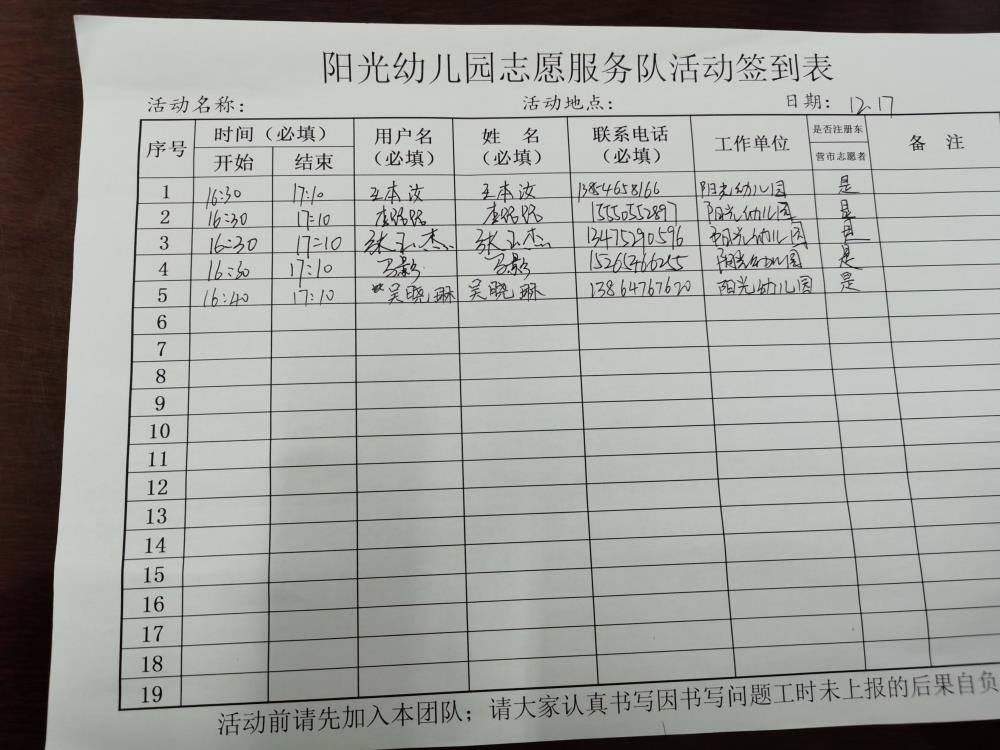 阳光幼儿园志愿服务队活动签到表
活动名称： 活动地点： 日期： 12.17
序号 时间（必填） 用户名（必填） 姓 名（必填） 联系电话（必填） 工作单位 是否注册东营市志愿者 备 注
开始 结束
1 16:30 17:10 王本汝 王本汝 13854658166 阳光幼儿园 是
2 16:30 17:10 李路路 李路路 15550552897 阳光幼儿园 是
3 16:30 17:10 张玉杰 张玉杰 13475290596 阳光幼儿园 是
4 16:30 17:10 马影 马影 阳光幼儿园 是
5 16:40 17:10 吴晓琳 吴晓琳 13864767620 阳光幼儿园 是
6
7
8
9
10
11
12
13
14
15
16
17
18
19
活动前请先加入本团队；请大家认真书写因书写问题工时未上报的后果自负